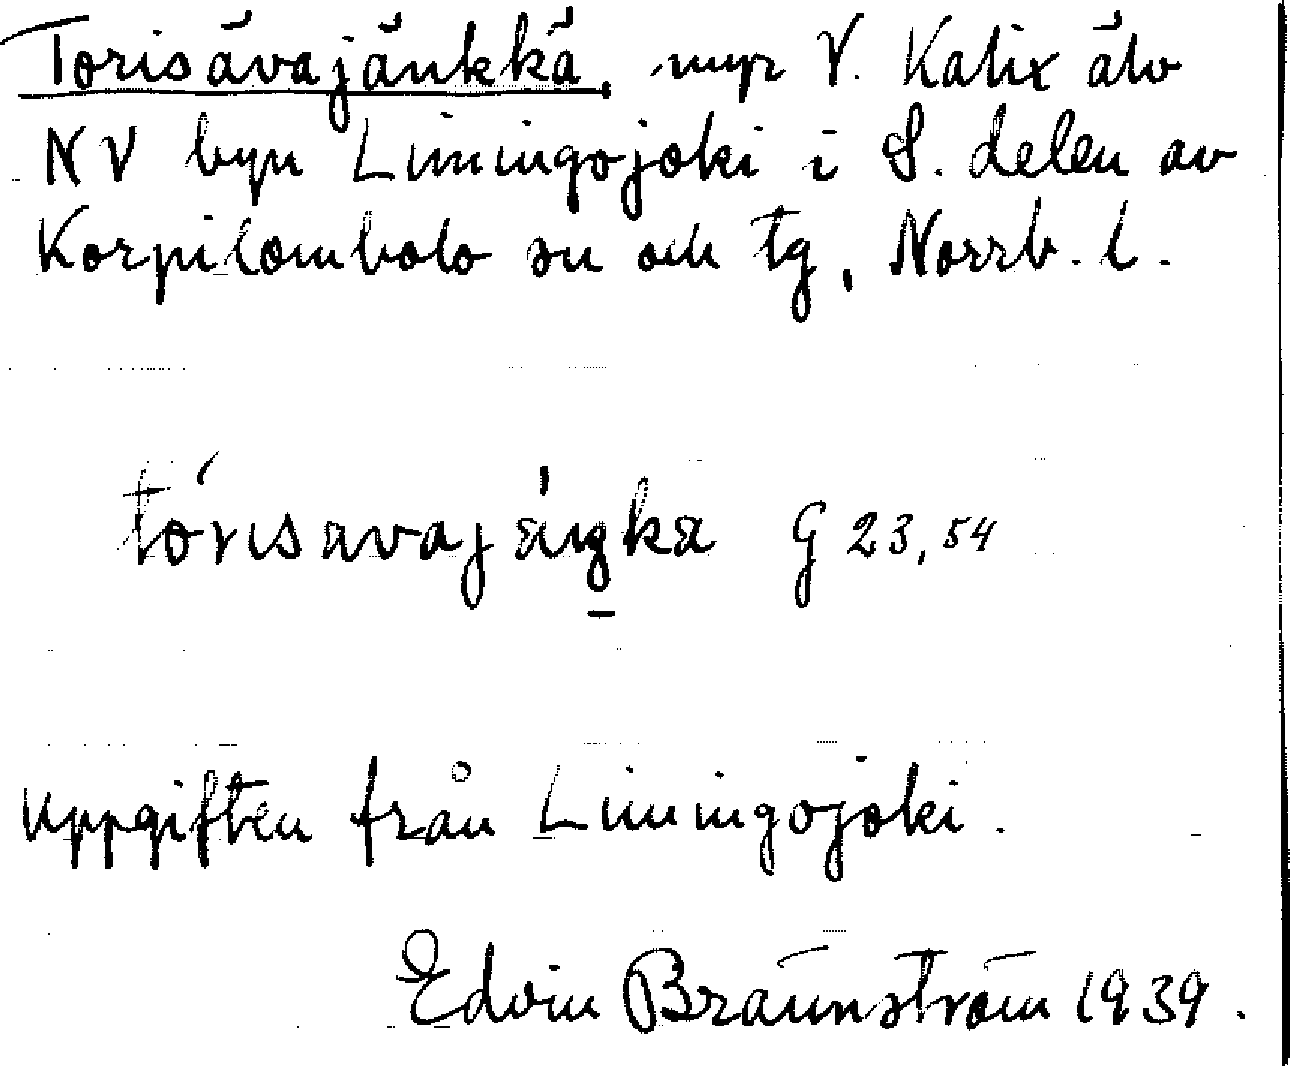 Torisävajänkkä, myr V. Kalix älv
NV byn Liminгojoki i S. delen av
Korpilombolo sn och tg, Norrb. l.
tórisavajäŋkä G 23,54
Uppgiften från Limingojoki.
Edvin Brännström 1939.